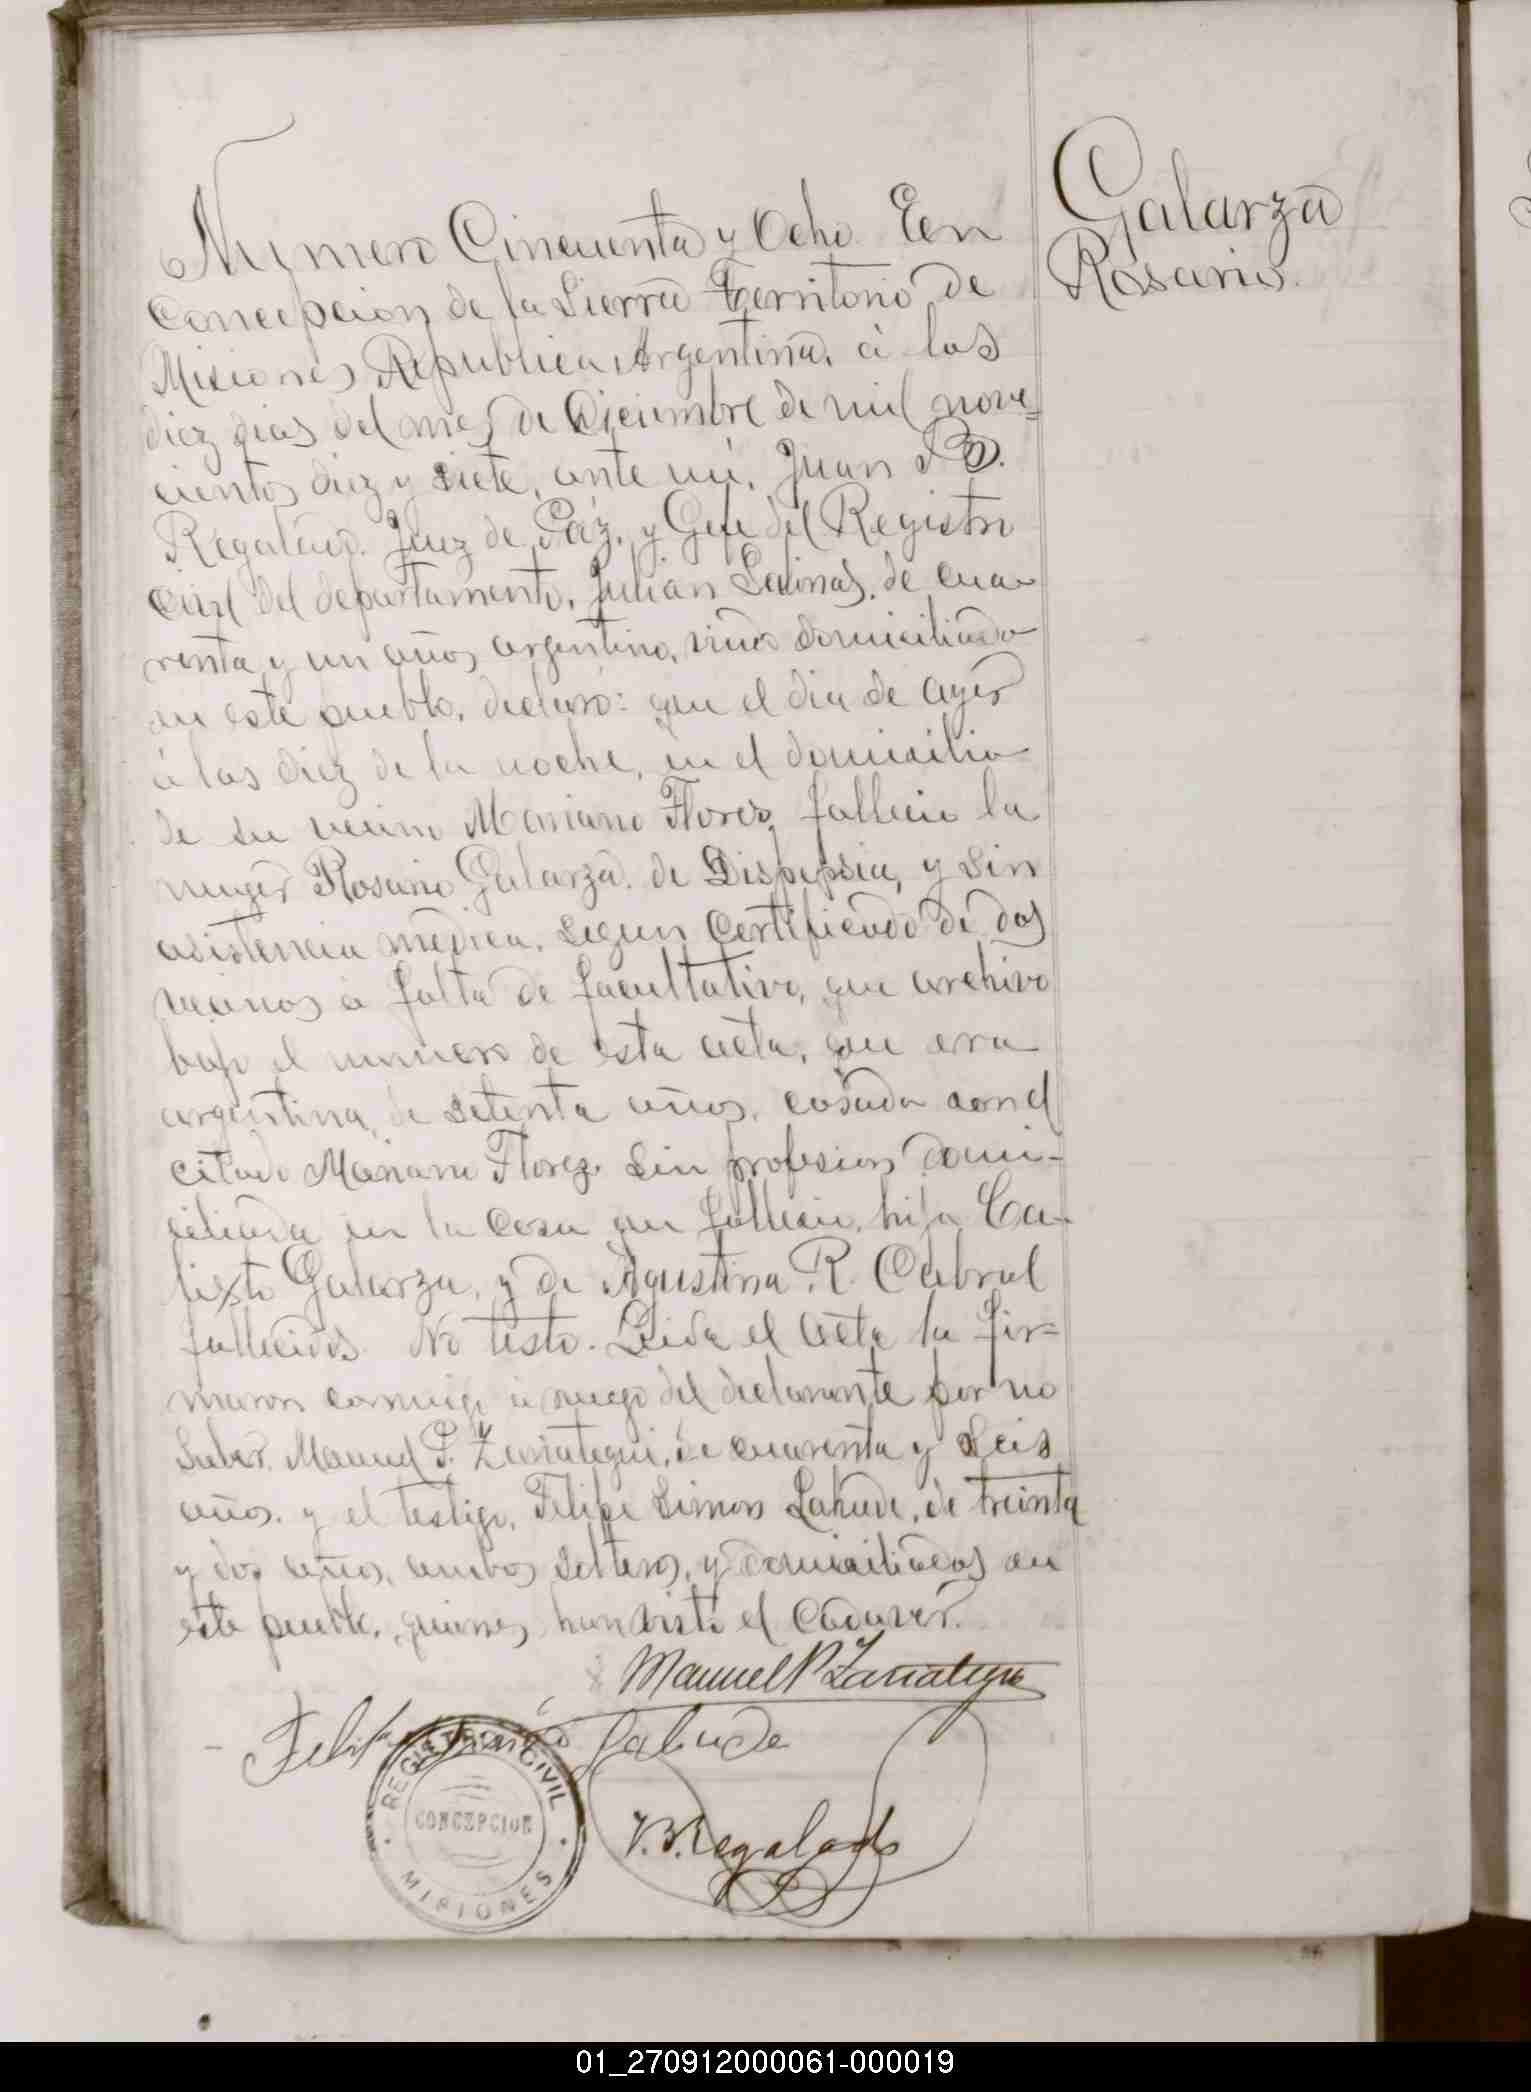 Galarza
Rosario.
Numero Cincuenta y Ocho. En
Concepcion de la Sierra Territorio de
Misiones Republica Argentina, à los
diez dias del mes de Diciembre de mil nove=
cientos diez y siete, ante mi, Juan B.
Regalado. Juez de Páz, y Gefe del Registro
Civil del departamento, Julian Salinas, de cua-
renta y un años, argentino, viudo domiciliado
en este pueblo, declaró: que el dia de ayer
à las diez de la noche, en el domicilio
de su vecino Mariano Florez, fallecio la
muger Rosario Galarza. de Dispepsia, y sin
asistencia medica, segun Certificado de dos
vecinos à falta de facultativo, que archivo
bajo el numero de esta acta, que era
argentina, de setenta años, casada con el
citado Mariano Florez. sin profesion domi-
ciliada en la casa que fallecio, hija Ca-
lixto Galarza, y de Agustina R. Cabral
fallecidos. No testo. Leida el acta la fir=
maron conmigo à ruego del declarante por no
saber, Manuel P. Zarrategui, de cuarenta y seis
años. y el testigo, Felipe Simon Lahude, de treinta
y dos años, ambos solteros, y domiciliados en
este pueblo, quienes han visto el Cadaver.
Manuel P Zarrategui
Felipe Simón Lahude
J. B. Regalado
REGISTRO CIVIL
CONCEPCION
MISIONES
01_270912000061-000019